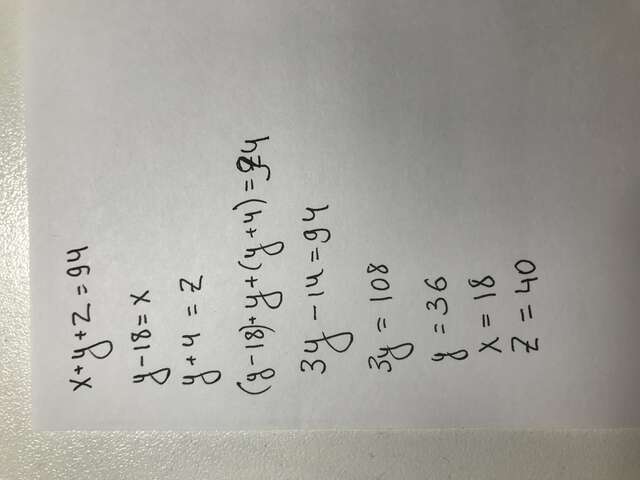 x+y+z=94
y-18=x
y+4=z
(y-18)+y+(y+4)=94
3y-14=94
3y=108
y=36
x=18
z=40